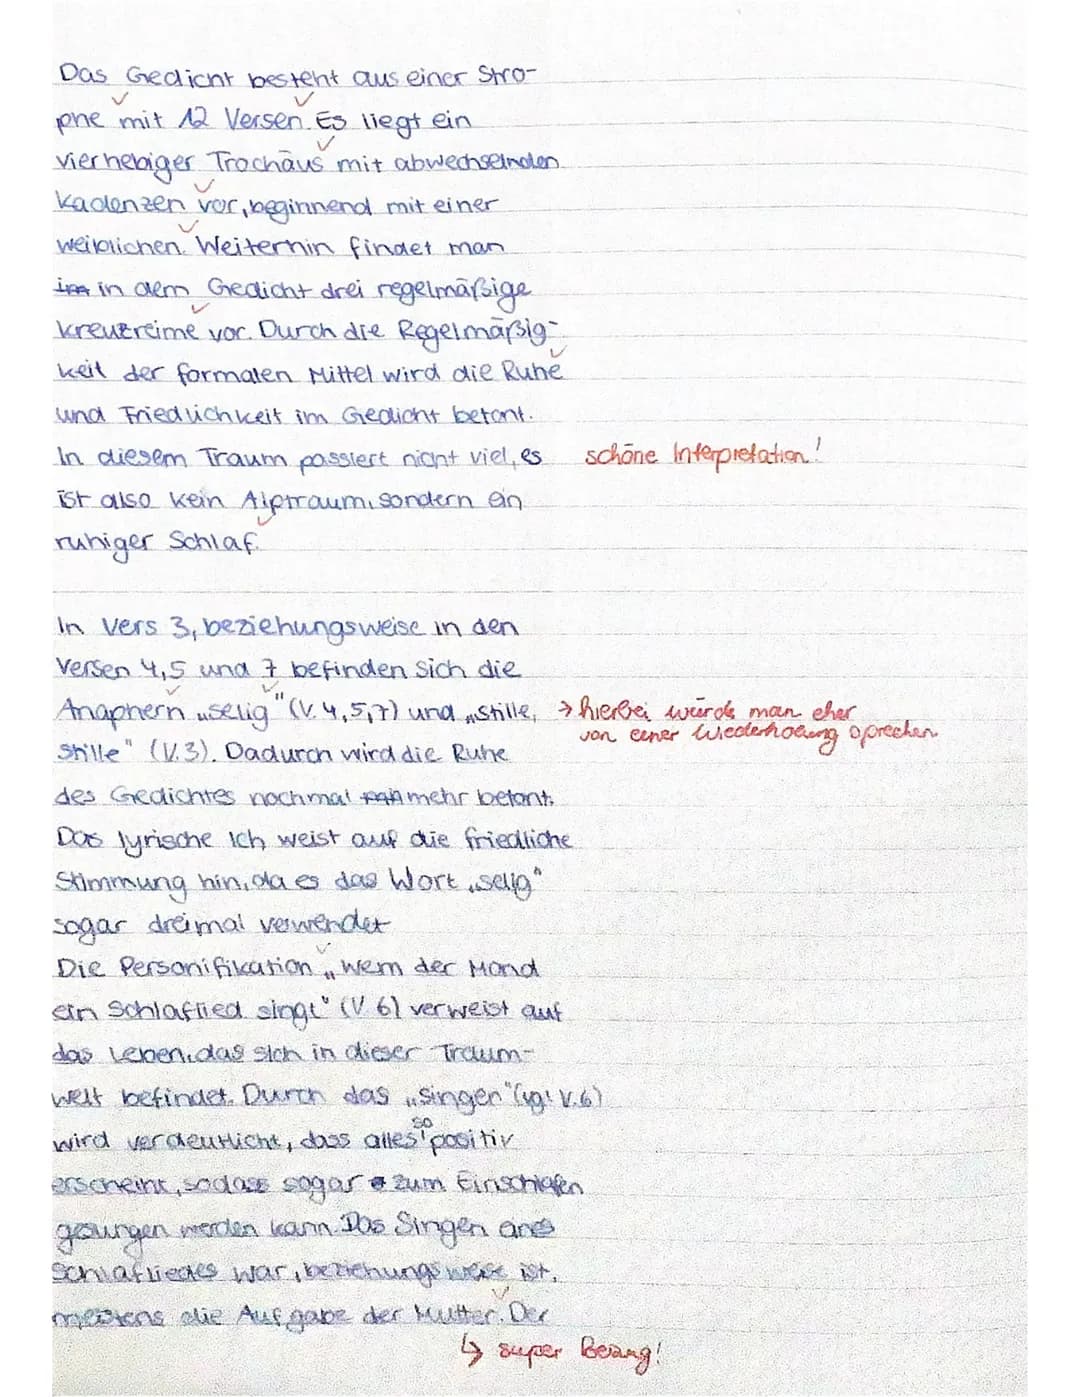 Das Gedicht besteht aus einer Stro-
phe mit 12 Versen. Es liegt ein
vierhebiger Trochäus mit abwechselnden
Kadenzen vor, beginnend mit einer
weiblichen. Weiterhin findet man
in dem Gedicht drei regelmäßige
Kreuzreime vor. Durch die Regelmäßig-
keit der formalen Mittel wird die Ruhe
und Friedlichkeit im Gedicht betont.
In diesem Traum passiert nicht viel, es schöne Interpretation!
ist also kein Alptraum, sondern ein
ruhiger Schlaf.
In Vers 3, beziehungsweise in den
Versen 4,5 und 7 befinden sich die
Anaphern „selig" (V. 4,5,7) und „stille, → hierbei würde man eher
stille" (V.3). Dadurch wird die Ruhe von einer Wiederholung sprechen
des Gedichtes nochmal mehr betont.
Das lyrische Ich weist auf die friedliche
Stimmung hin, da es das Wort „selig"
sogar dreimal verwendet
Die Personifikation „wem der Mond
ein Schlaflied singt" (V. 6) verweist auf
das Leben, das sich in dieser Traum-
welt befindet. Durch das „Singen" (vgl V.6)
wird verdeutlicht, dass alles so positiv
erscheint, sodass sogar zum Einschlafen
gesungen werden kann. Das Singen eines
Schlafliedes war, beziehungsweise ist,
meistens die Aufgabe der Mutter. Der
↳ super Bezug!